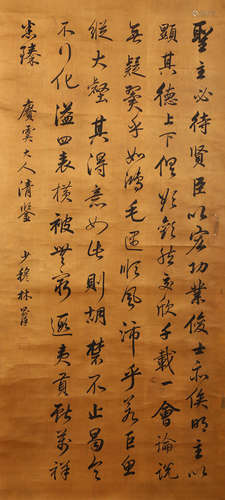 聖主必待賢臣以宏功業俊士亦俟明主以
顯其德上下俱欲歡然交欣千載一會論說
無疑翼乎如鴻毛遇順風沛乎若巨魚
縱大壑其得意如此則胡禁不止曷令
不行化溢四表橫被無窮遐夷貢獻萬祥
畢臻 大人清鑒 少穆林則徐